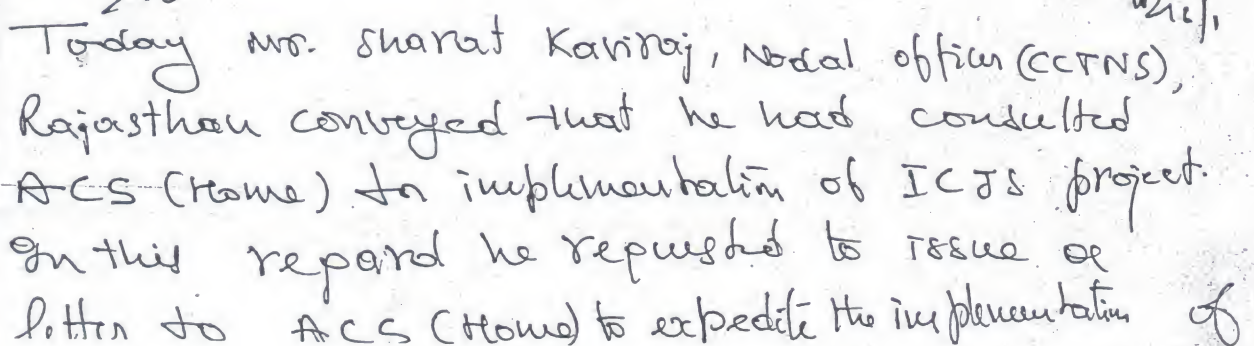 Today Mr. Sharat Kaviraj, Nodal officer (CCTNS),
Rajasthan conveyed that he had consulted
ACS (Home) for implementation of ICJS project.
In this regard he requested to issue a
letter to ACS (Home) to expedite the implementation of